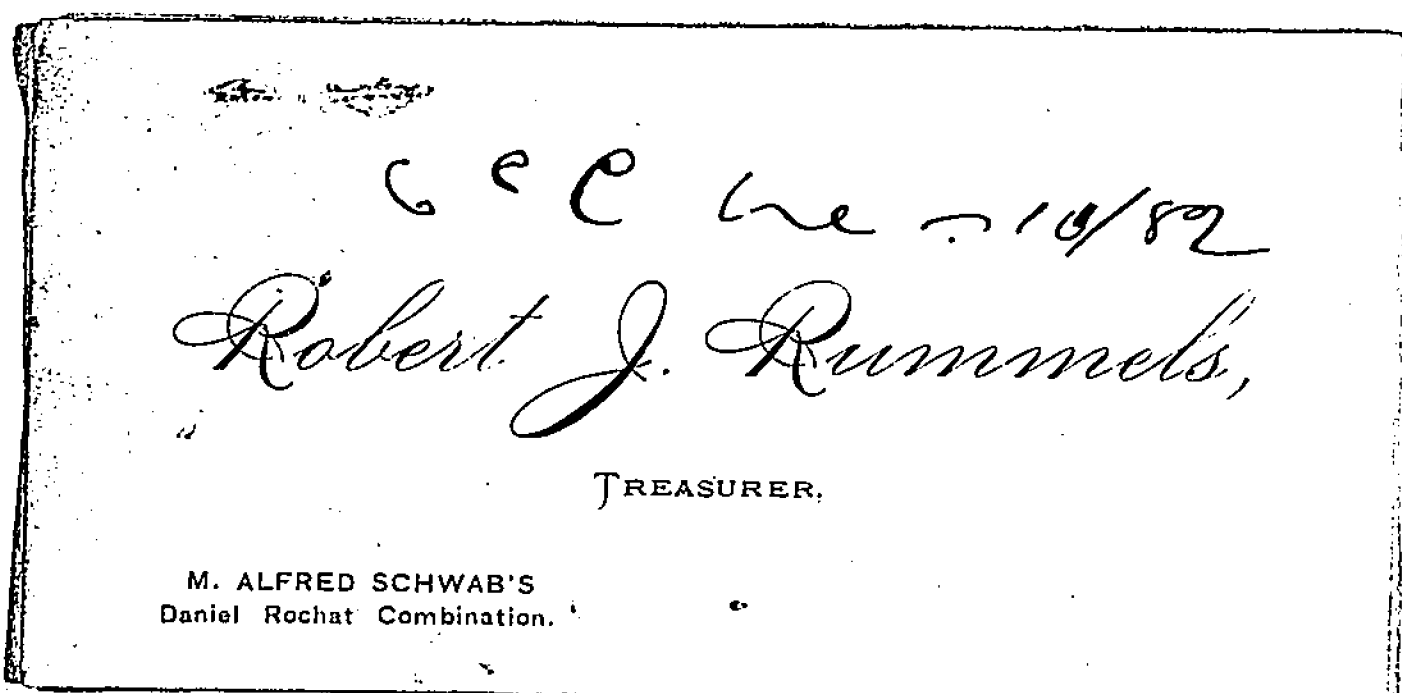 10/82
Robert J. Rummels,
TREASURER.
M. ALFRED SCHWAB'S
Daniel Rochat Combination.